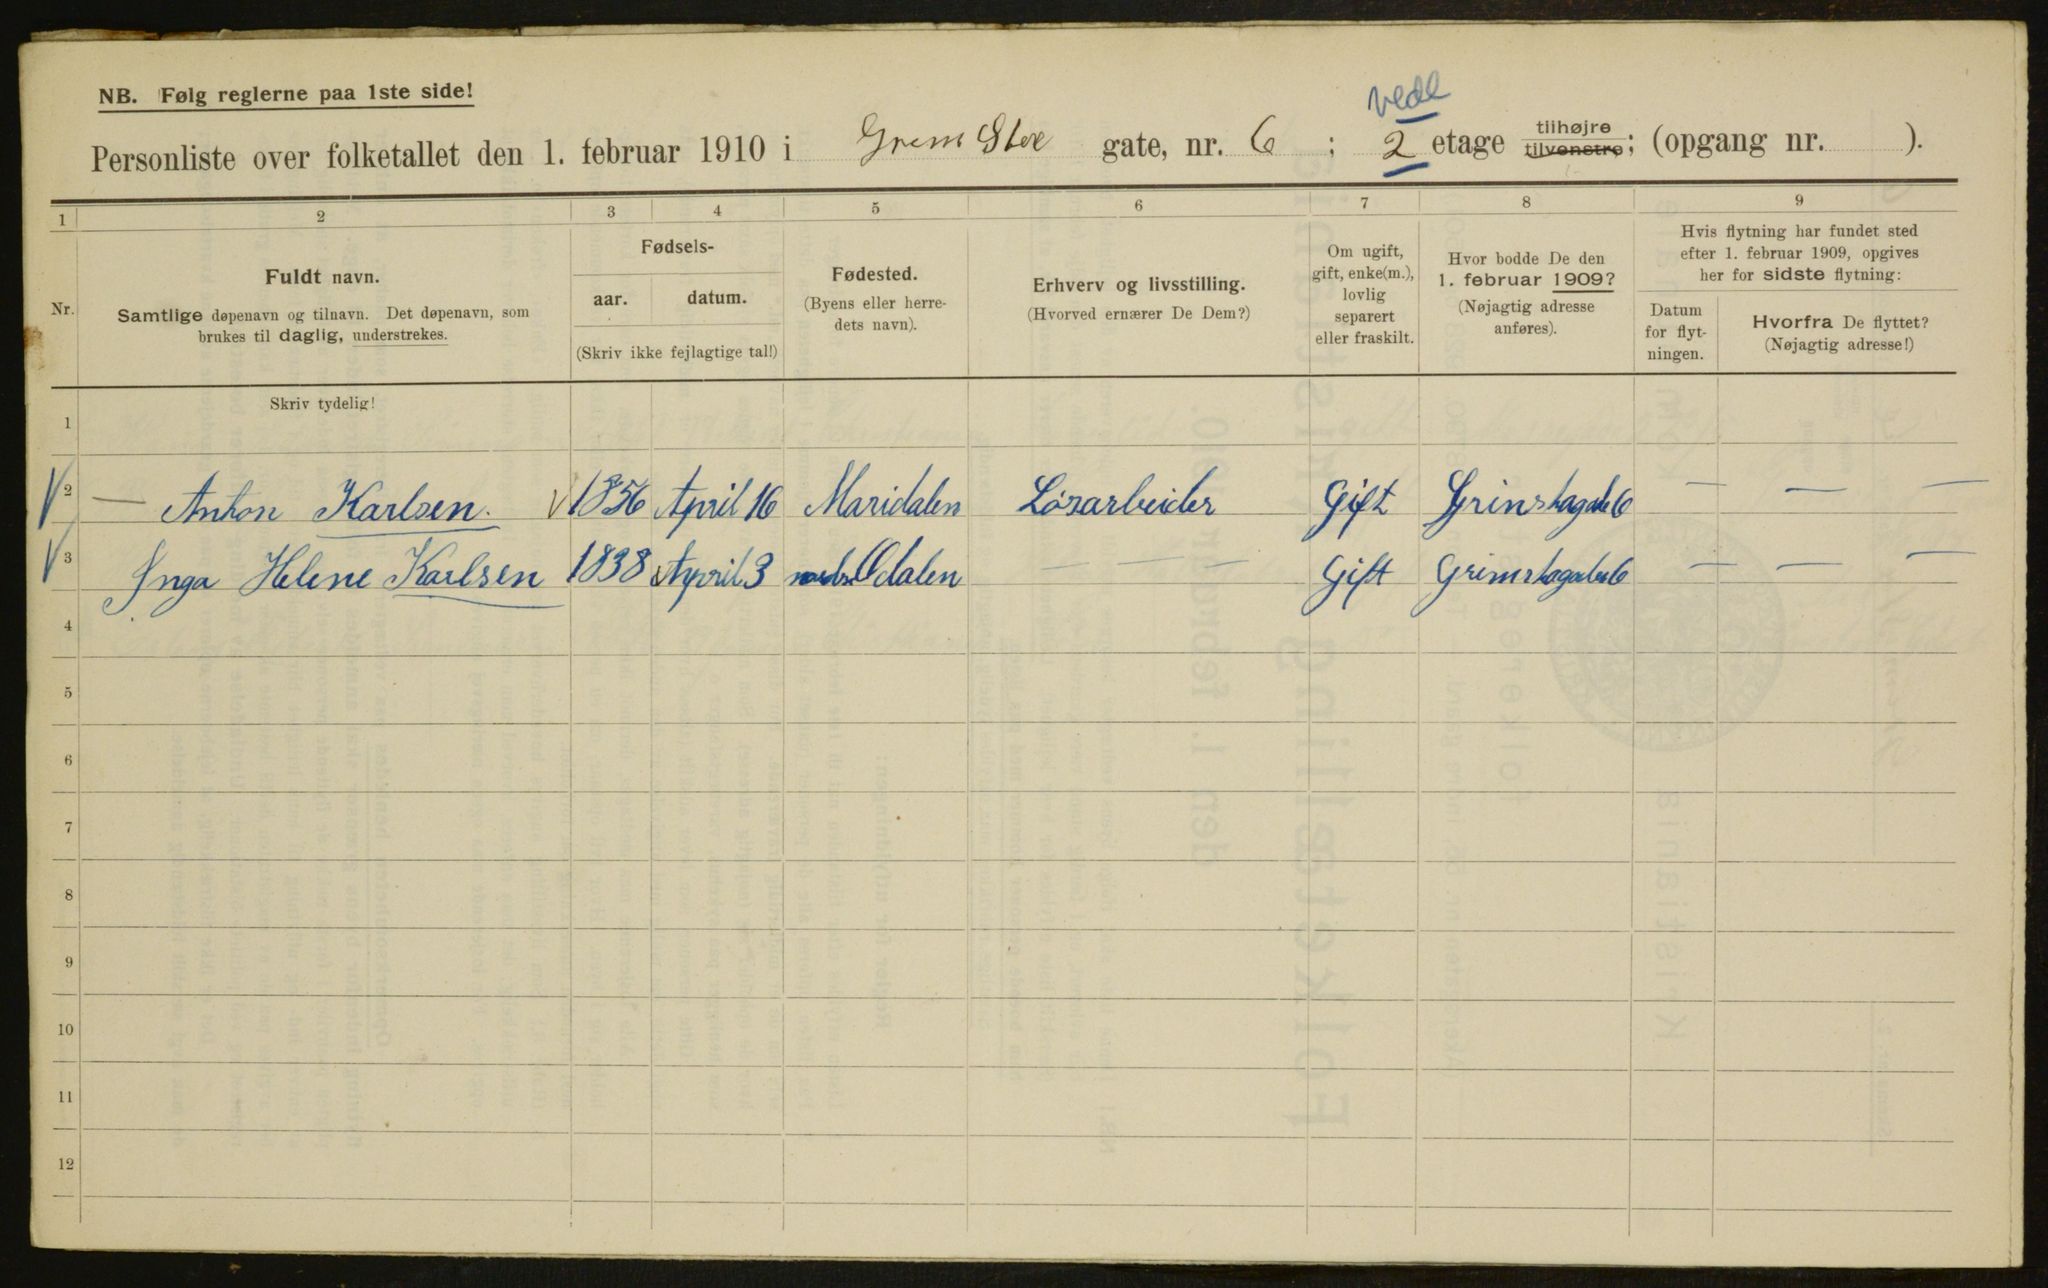 NB. Følg reglerne paa 1ste side!
vedl
Personliste over folketallet den 1. februar 1910 i Grimstex gate, nr. 6 ; 2 etage tilhøjre tilvenstre; (opgang nr. ).
1 2 3 4 5 6 7 8 9
Nr.
Fuldt navn.
Samtlige døpenavn og tilnavn. Det døpenavn, som
brukes til daglig, understrekes.
Fødsels-
aar. datum.
(Skriv ikke fejlagtige tal!)
Fødested.
(Byens eller herre-
dets navn).
Erhverv og livsstilling.
(Hvorved ernærer De Dem?)
Om ugift,
gift, enke(m.),
lovlig
separert
eller fraskilt.
Hvor bodde De den
1. februar 1909?
(Nøjagtig adresse
anføres).
Hvis flytning har fundet sted
efter 1. februar 1909, opgives
her for sidste flytning:
Datum
for flyt-
ningen.
Hvorfra De flyttet?
(Nøjagtig adresse!)
Skriv tydelig!
1
2 — Anton Karlsen. 1856 April 16 Maridalen Løsarbeider Gift Grinstagade 6 — — —
3 Inga Helene Karlsen 1838 April 3 nordre Odalen — — — Gift Grimstagade 6 — — —
4
5
6
7
8
9
10
11
12